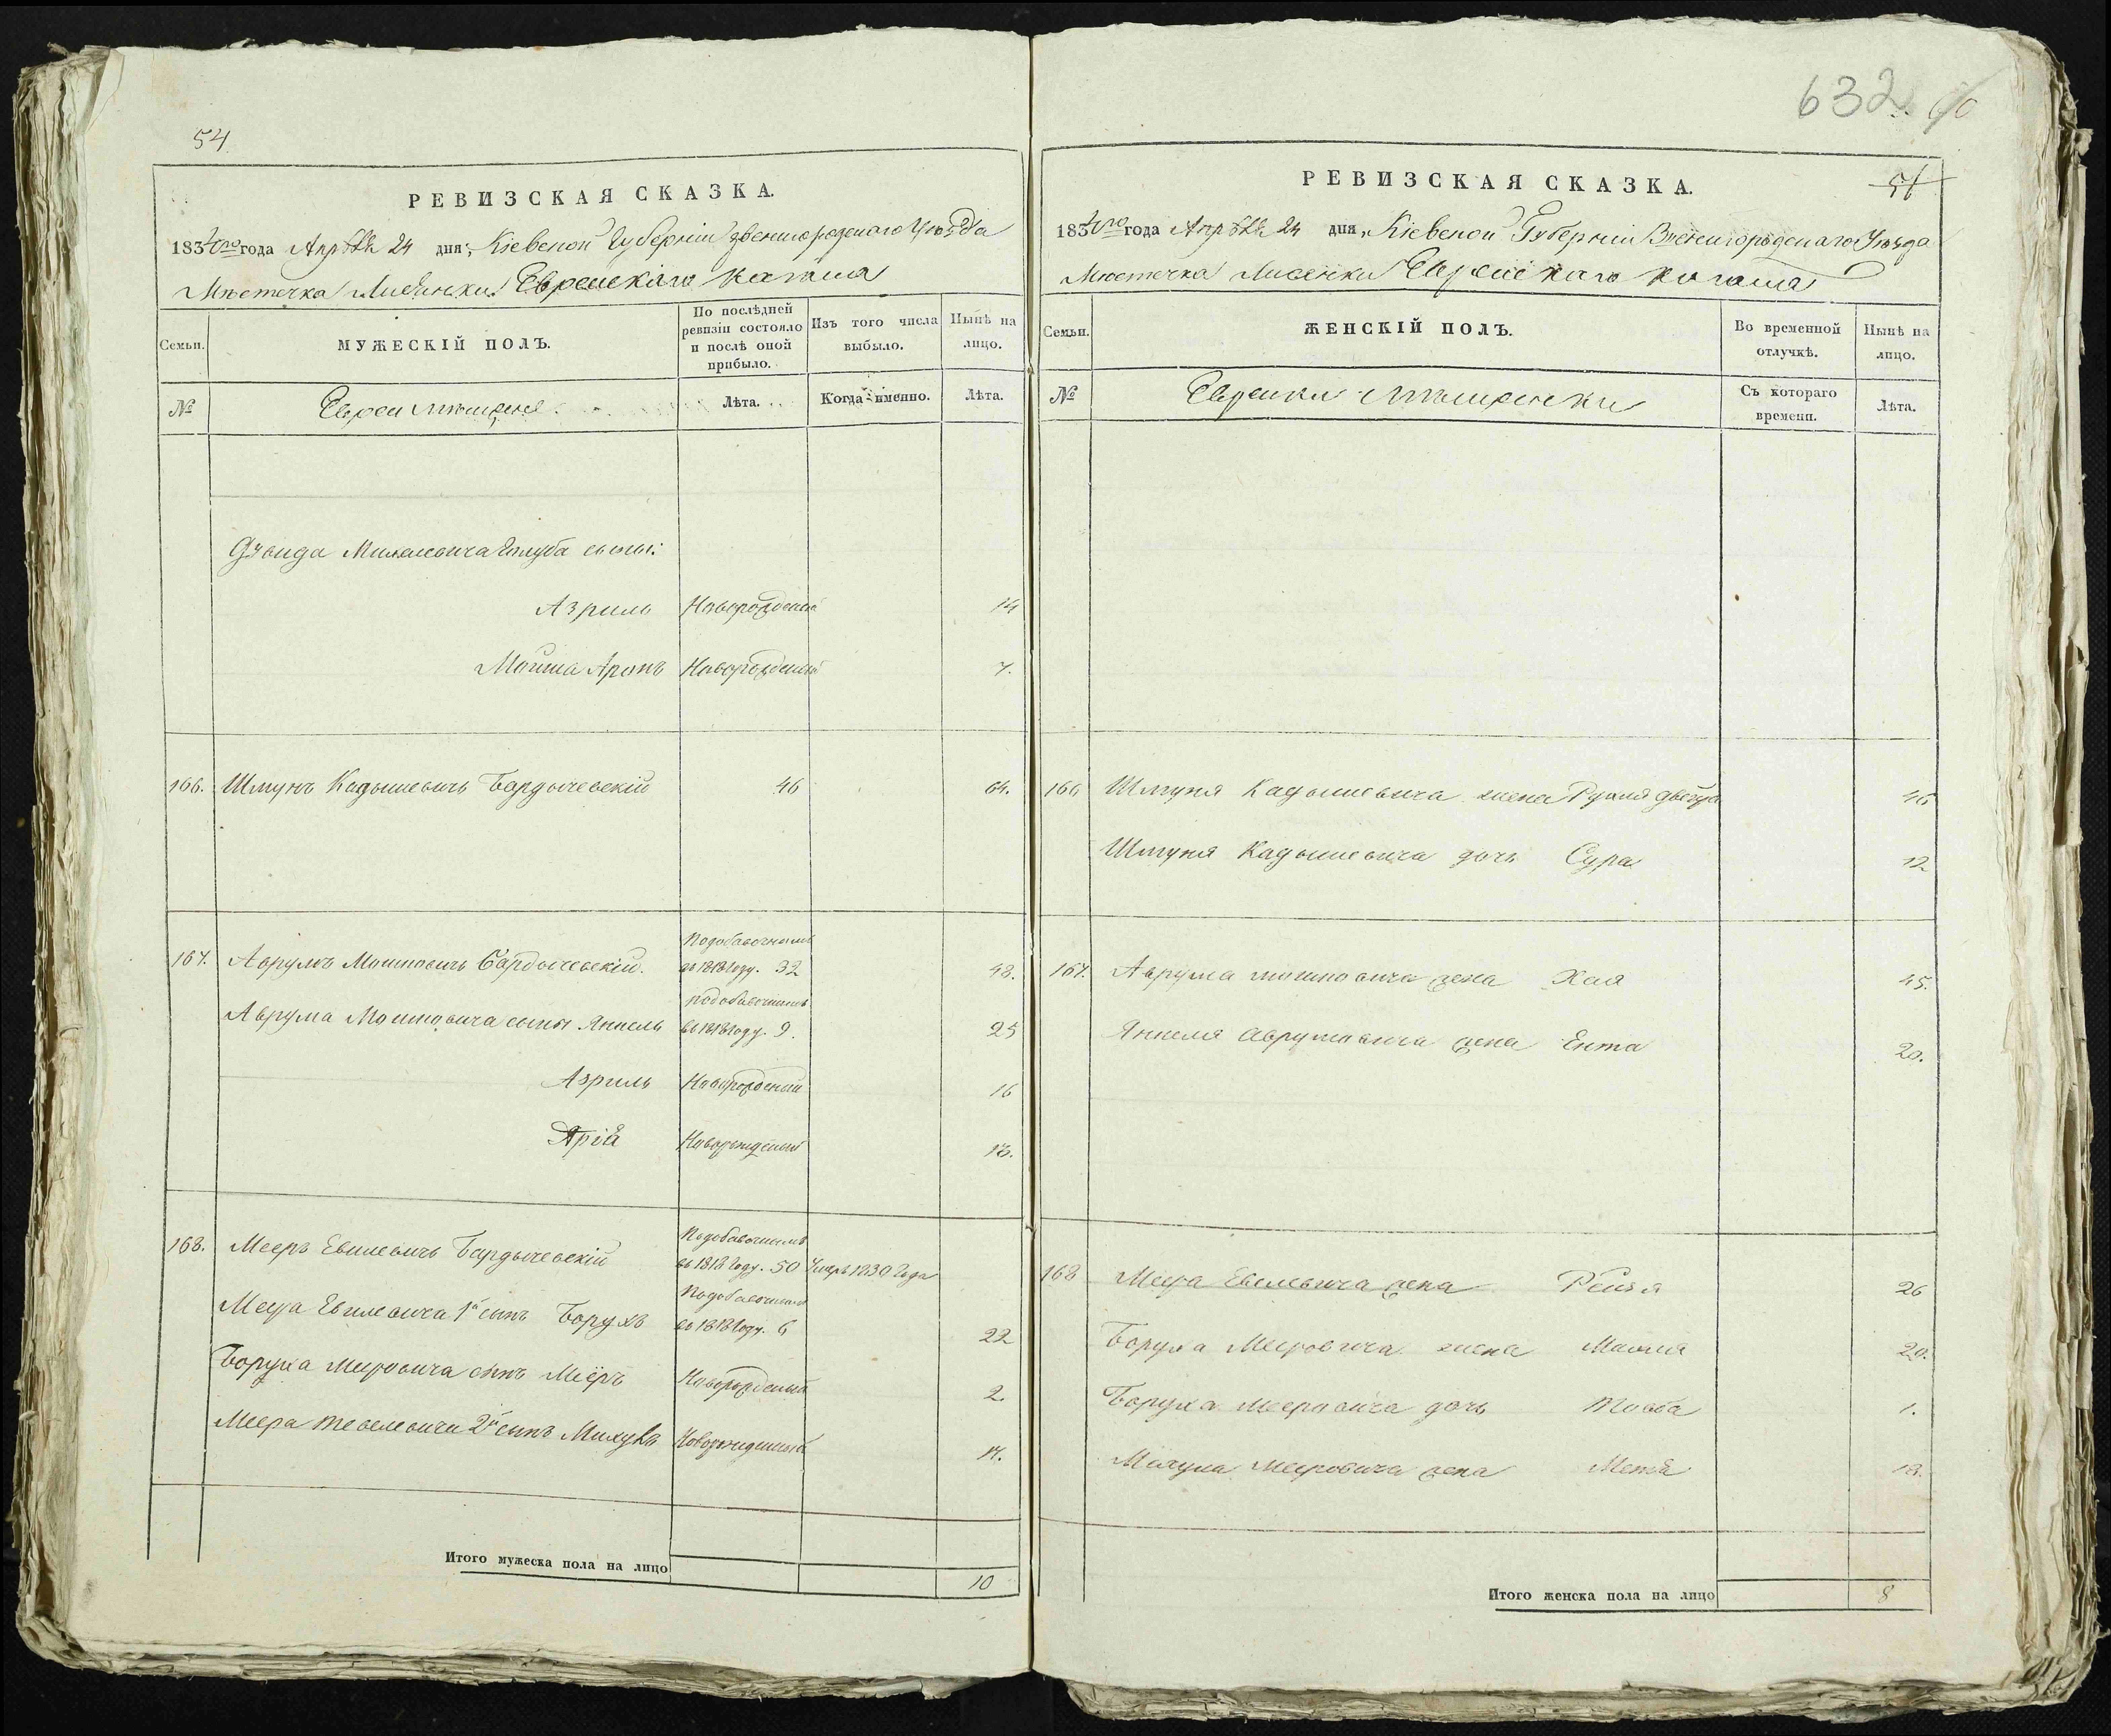 54
РЕВИЗСКАЯ СКАЗКА.
1834го года Апрѣля 24 дня, Кіевской Губерніи Звенигородскаго Уѣзда
Мѣстечка Лисянки Еврейскаго Кагала
Семьи.
МУЖЕСКІЙ ПОЛЪ.
По послѣдней ревизіи состояло и послѣ оной прибыло.
Изъ того числа выбыло.
Нынѣ на лицо.
№
Евреи мѣщане
Лѣта.
Когда именно.
Лѣта.
сыны:
Азриль Новорожденный 14
Мойша Аронъ Новорожденный 7.
166. Шмунъ Кадышевичъ Бардычевскій 46 64.
167. Аврумъ Мошковичъ Бардычевскій. Подобавочнымъ въ 1818 году. 32 48.
Аврума Мошковича сыны Янкель подобавочнымъ въ 1818 году. 9. 25
Азриль Новорожденный 16
Арій Новорожденный 13.
168. Мееръ Евилевичъ Бардычевскій Подобавочнымъ въ 1818 году. 50 Умеръ 1830 года
Меера Евилевича 1й сынъ Борухъ Подобавочнымъ въ 1818 году. 6 22
Боруха Меировича сынъ Меєръ Новорожденный 2.
Меера 2й сынъ Новорожденный
Итого мужеска пола на лицо 10
632.
РЕВИЗСКАЯ СКАЗКА.
1834го года Апрѣля 24 дня, Кіевской Губерніи Звенигородскаго Уѣзда
Мѣстечка Лисянки Еврейскаго Кагала
Семьи.
ЖЕНСКІЙ ПОЛЪ.
Во временной отлучкѣ.
Нынѣ на лицо.
№
Еврейки мѣщанки
Съ котораго времени.
Лѣта.
166 Шмуня Кадышевича жена Рухля Двейра 46
Шмуня Кадышевича дочь Сура 12
167. Аврума Мошковича жена Хая 45.
Янкеля Аврумовича жена Ента 20.
168 Меера Евелевича жена Рейзя 26
Боруха Мееровича жена 20.
Боруха Мееровича дочь Товба 1.
Мееровича жена
Итого женска пола на лицо 8